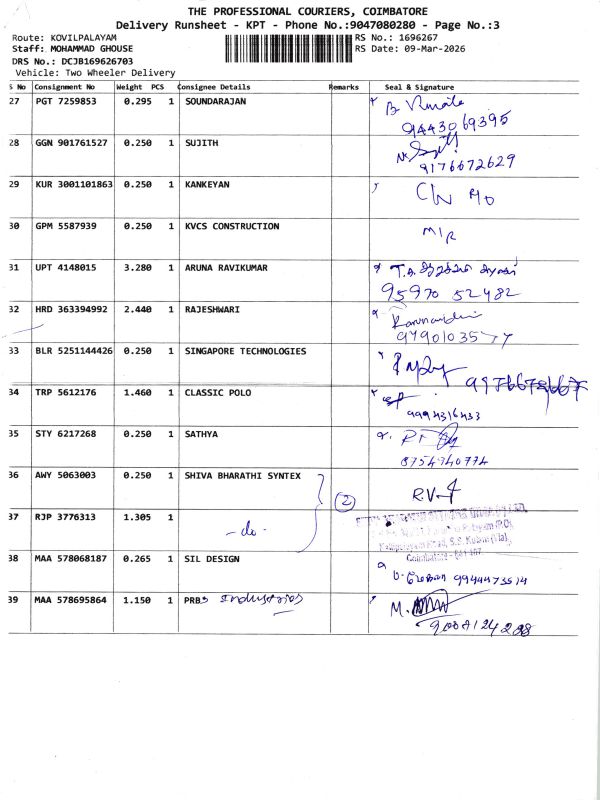 THE PROFESSIONAL COURIERS, COIMBATORE
Delivery Runsheet - KPT - Phone No.:9047080280 - Page No.:3
Route: KOVILPALAYAM RS No.: 1696267
Staff: MOHAMMAD GHOUSE RS Date: 09-Mar-2026
DRS No.: DCJB169626703
Vehicle: Two Wheeler Delivery
S No Consignment No Weight PCS Consignee Details Remarks Seal & Signature
27 PGT 7259853 0.295 1 SOUNDARAJAN B. Vimala
9443069395
28 GGN 901761527 0.250 1 SUJITH
9176672629
29 KUR 3001101863 0.250 1 KANKEYAN
30 GPM 5587939 0.250 1 KVCS CONSTRUCTION M/R
31 UPT 4148015 3.280 1 ARUNA RAVIKUMAR
95970 52482
32 HRD 363394992 2.440 1 RAJESHWARI
9790103577
33 BLR 5251144426 0.250 1 SINGAPORE TECHNOLOGIES
34 TRP 5612176 1.460 1 CLASSIC POLO
9994316433
35 STY 6217268 0.250 1 SATHYA
8754740774
36 AWY 5063003 0.250 1 SHIVA BHARATHI SYNTEX 2 R.V.
37 RJP 3776313 1.305 1 - do -
38 MAA 578068187 0.265 1 SIL DESIGN
Coimbatore - 641 107
9944473514
39 MAA 578695864 1.150 1 PRBS Industries M.
9008124288